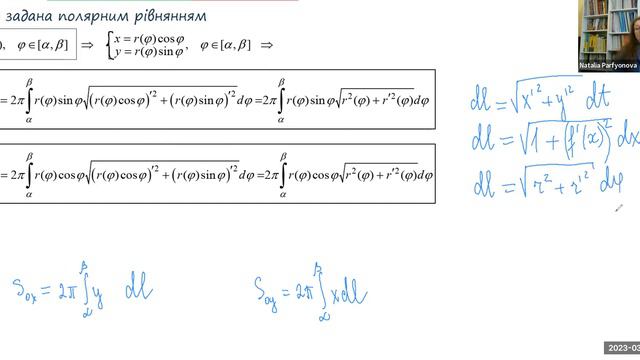 задана полярним рівнянням
), φ∈[α, β] ⇒ { x = r(φ)cosφ, y = r(φ)sinφ, φ∈[α, β] ⇒
= 2π ∫_α^β r(φ)sinφ √((r(φ)cosφ)′² + (r(φ)sinφ)′²) dφ = 2π ∫_α^β r(φ)sinφ √(r²(φ) + r′²(φ)) dφ
= 2π ∫_α^β r(φ)cosφ √((r(φ)cosφ)′² + (r(φ)sinφ)′²) dφ = 2π ∫_α^β r(φ)cosφ √(r²(φ) + r′²(φ)) dφ
Natalia Parfyonova
dl = √(x′² + y′²) dt
dl = √(1 + (f′(x))²) dx
dl = √(r² + r′²) dφ
S_ox = 2π ∫_α^β y dl
S_oy = 2π ∫_α^β x dl
2023-03